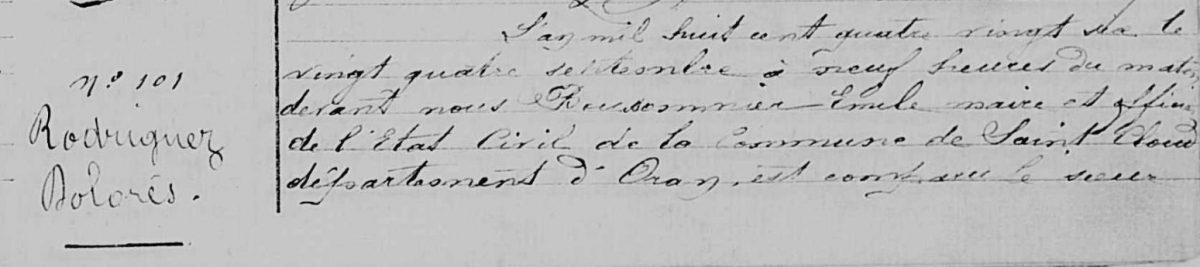 N° 101
Rodriguez
Dolorés.
L'an mil huit cent quatre vingt six le
vingt quatre septembre à neuf heures du matin
devant nous Emile maire et officier
de l'Etat Civil de la Commune de Saint Cloud
département d'Oran, est comparu le sieur